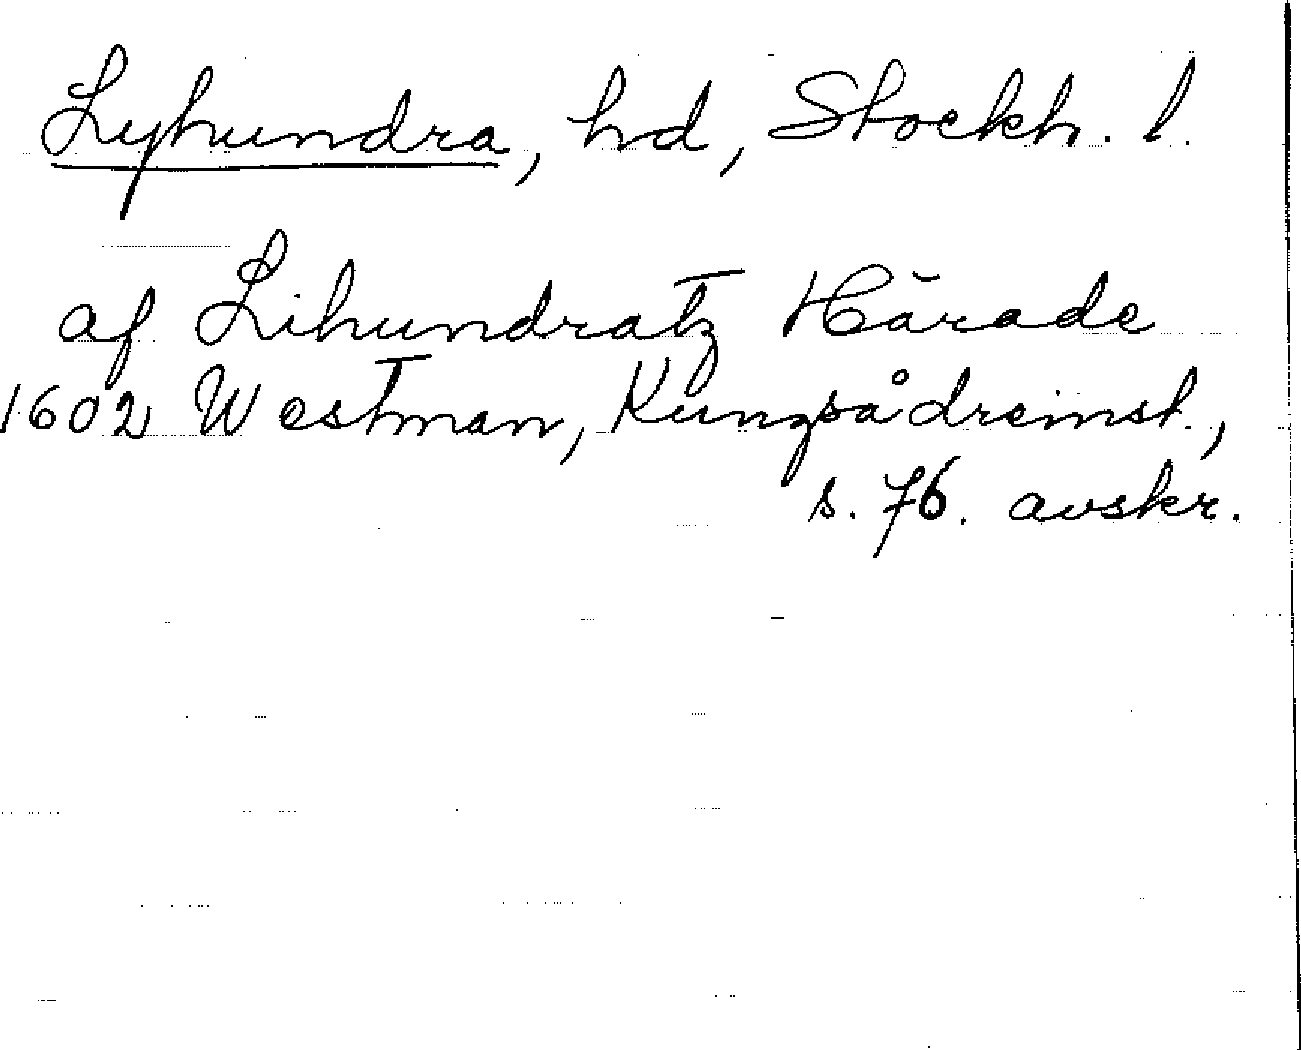 Lyhundra, hd, Stockh. l.
af Lihundratz Härade
1602 Westman, Kungsådreinst.,
s. 76. avskr.